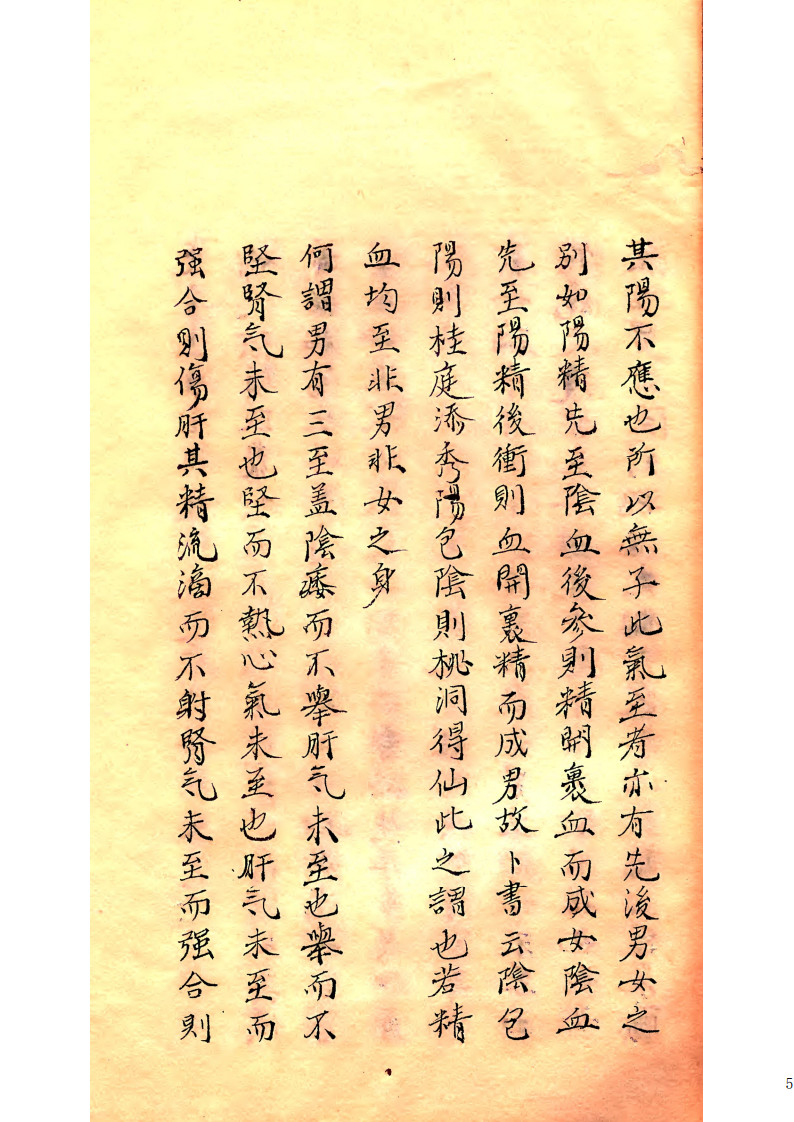 其陽不應也所以無子此氣至者亦有先後男女之
別如陽精先至陰血後參則精開裹血而成女陰血
先至陽精後衝則血開裹精而成男故卜書云陰包
陽則桂庭添秀陽包陰則桃洞得仙此之謂也若精
血均至非男非女之身
何謂男有三至盖陰痿而不舉肝气未至也舉而不
堅腎气未至也堅而不熱心氣未至也肝气未至而
强合則傷肝其精流滴而不射腎气未至而强合則
5